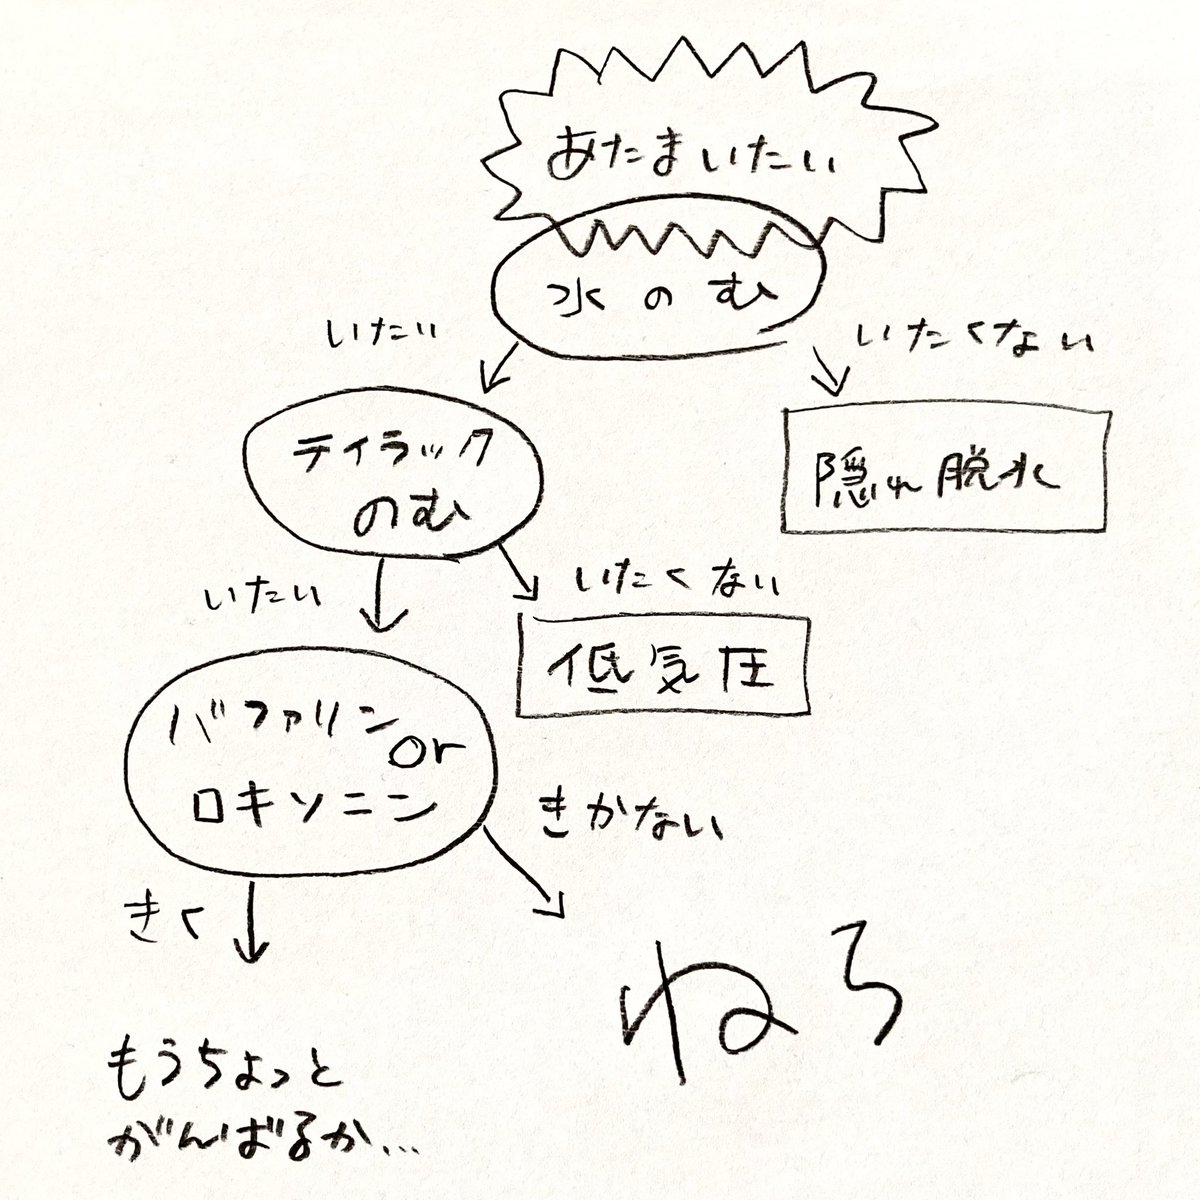 あたまいたい
水のむ
いたい
いたくない
テイラック
のむ
隠れ脱水
いたい
いたくない
低気圧
バファリン
or
ロキソニン
きかない
きく
ねろ
もうちょっと
がんばるか...